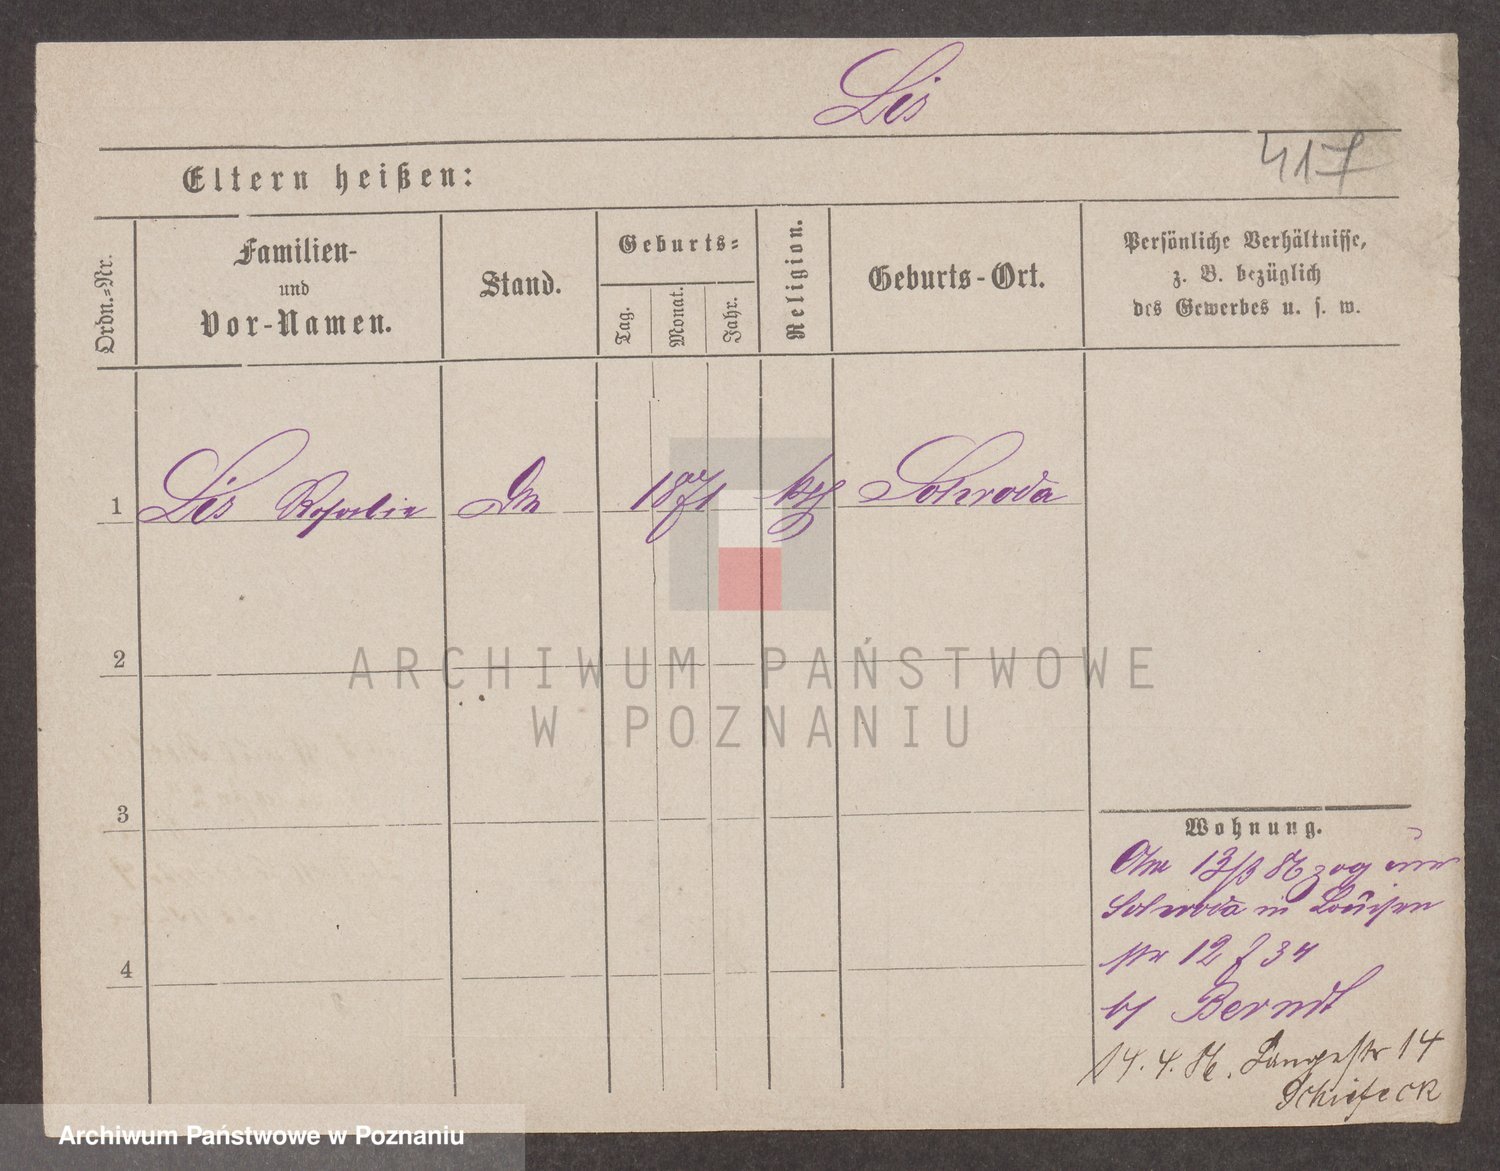 Lis
417
Eltern heißen:
Ordn.-Nr.
Familien-
und
Vor-Namen.
Stand.
Geburts-
Tag.
Monat.
Jahr.
Religion.
Geburts-Ort.
Persönliche Verhältnisse,
z. B. bezüglich
des Gewerbes u. s. w.
1 Lis Rosalie 1871 kth Schroda
2
ARCHIWUM PAŃSTWOWE
W POZNANIU
3
Wohnung.
13/3 zog
Schroda in Louisen
str 12 34
bj Berndt
4
14. 4. 86. Langestr 14
Schiefeck
Archiwum Państwowe w Poznaniu